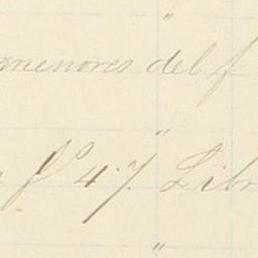 "
menores del f
"
f° 47. Libr
"